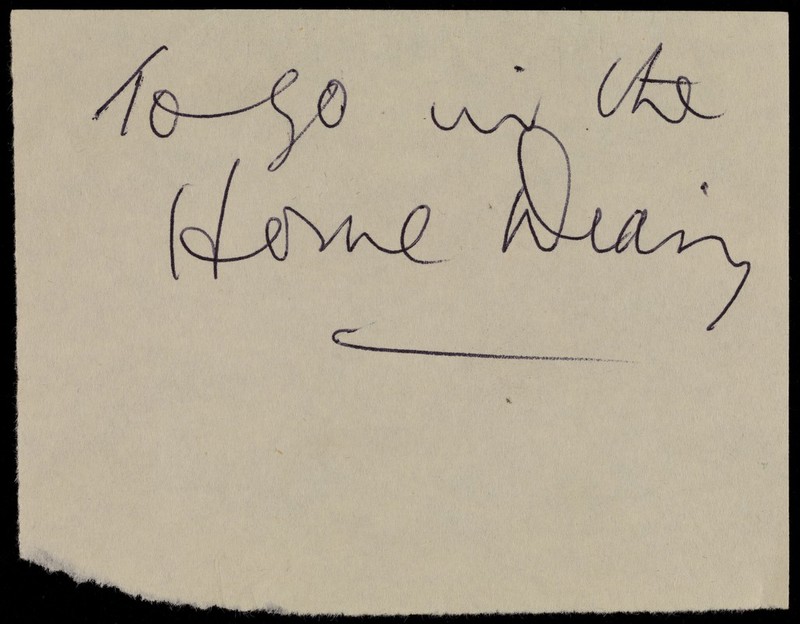 To go in the
Home Diary